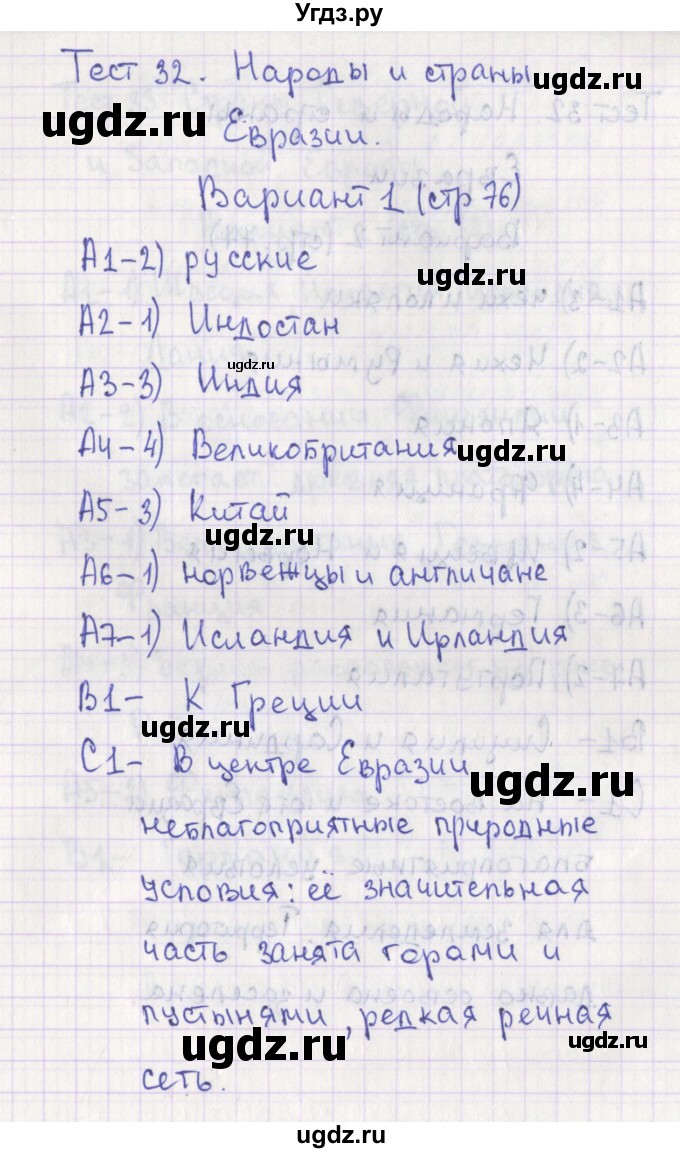 Угдз.ру
Тест 32. Народы и страны
ugdz.ru
ugdz.ru
Евразии.
Вариант 1 (стр 76)
А1-2) русские
ugdz.ru
А2-1) Индостан
ugdz.ru
А3-3) Индия
А4-4) Великобритания
ugdz.ru
А5-3) Китай
ugdz.ru
А6-1) норвежцы и англичане
А7-1) Исландия и Ирландия
В1- К Греции
ugdz.ru
С1- В центре Евразии
ugdz.ru
неблагоприятные природные
условия: её значительная
часть занята горами и
пустынями, редкая речная
ugdz.ru
ugdz.ru
сеть.
ugdz.ru